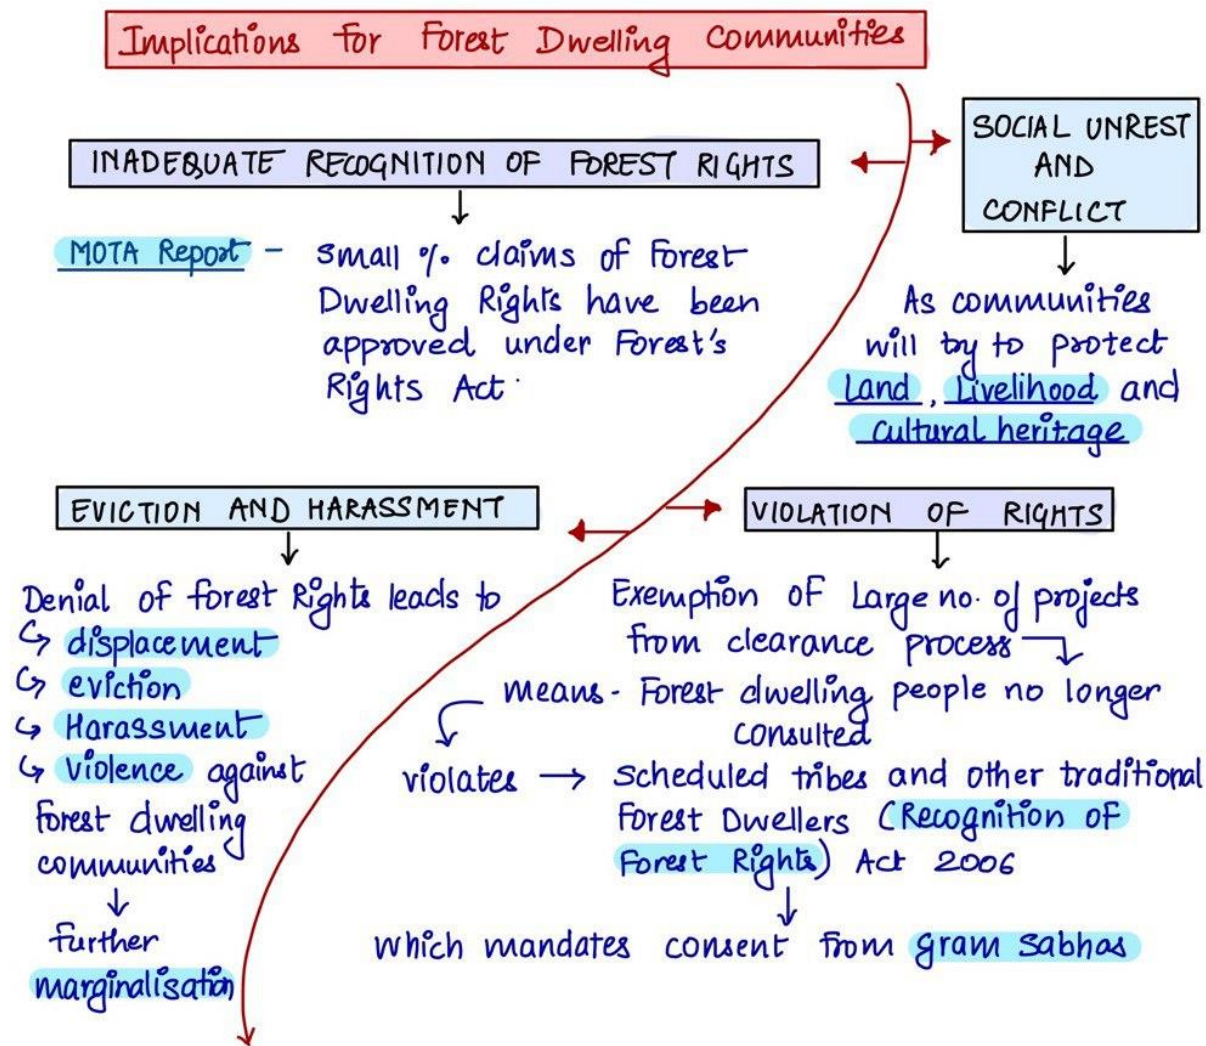 Implications for Forest Dwelling Communities
INADEQUATE RECOGNITION OF FOREST RIGHTS
MOTA Report - Small % claims of Forest
Dwelling Rights have been
approved under Forest's
Rights Act.
SOCIAL UNREST
AND
CONFLICT
As communities
will try to protect
Land, Livelihood and
cultural heritage
EVICTION AND HARASSMENT
Denial of forest Rights leads to
displacement
eviction
Harassment
violence against
forest dwelling
communities
further
marginalisation
VIOLATION OF RIGHTS
Exemption of Large no. of projects
from clearance process
means - Forest dwelling people no longer
consulted
violates → scheduled tribes and other traditional
Forest Dwellers (Recognition of
Forest Rights) Act 2006
which mandates consent from gram sabhas